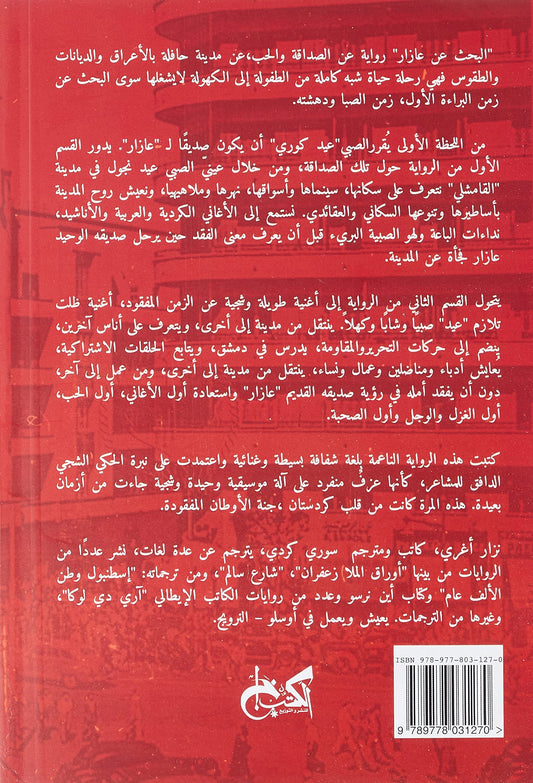 "البحث عن عازار" رواية عن الصداقة والحب،عن مدينة حافلة بالأعراق والديانات
والطقوس فهي رحلة حياة شبه كاملة من الطفولة إلى الكهولة لايشغلها سوى البحث عن
زمن البراءة الأول، زمن الصبا ودهشته.
من اللحظة الأولى يُقررالصبي"عيد كوري" أن يكون صديقًا لـ "عازار". يدور القسم
الأول من الرواية حول تلك الصداقة، ومن خلال عينيّ الصبي عيد نجول في مدينة
"القامشلي" نتعرف على سكانها، سينماها وأسواقها، نهرها وملاهيها، ونعيش روح المدينة
بأساطيرها وتنوعها السكاني والعقائدي. نستمع إلى الأغاني الكردية والعربية والأناشيد،
نداءات الباعة ولهو الصبية البريء قبل أن يعرف معنى الفقد حين يرحل صديقه الوحيد
عازار فجأة عن المدينة.
يتحول القسم الثاني من الرواية إلى أغنية طويلة وشجية عن الزمن المفقود، أغنية ظلت
تلازم "عيد" صبيًا وشابًا وكهلاً. ينتقل من مدينة إلى أخرى، ويتعرف على أناس آخرين،
ينضم إلى حركات التحريروالمقاومة، يدرس في دمشق، ويتابع الحلقات الاشتراكية،
يُعايش أدباء ومناضلين وعمال ونساء، ينتقل من مدينة إلى أخرى، ومن عمل إلى آخر،
دون أن يفقد أمله في رؤية صديقه القديم "عازار" واستعادة أول الأغاني، أول الحب،
أول الغزل والوجل وأول الصحبة.
كتبت هذه الرواية الناعمة بلغة شفافة بسيطة وغنائية واعتمدت على نبرة الحكي الشجي
الدافق للمشاعر، كأنها عزفٌ منفرد على آلة موسيقية وحيدة وشجية جاءت من أزمان
بعيدة. هذه المرة كانت من قلب كردستان ،جنة الأوطان المفقودة.
نزار أغري، كاتب ومترجم سوري كردي، يترجم عن عدة لغات، نشر عددًا من
الروايات من بينها "أوراق الملا زعفران"، "شارع سالم"، ومن ترجماته: "إسطنبول وطن
الألف عام" وكتاب أين نرسو وعدد من روايات الكاتب الإيطالي "آري دي لوكا"،
وغيرها من الترجمات. يعيش ويعمل في أوسلو – النرويج.
ISBN 978-977-803-127-0
9 789778 031270 >
الكتب خان
للنشر والتوزيع